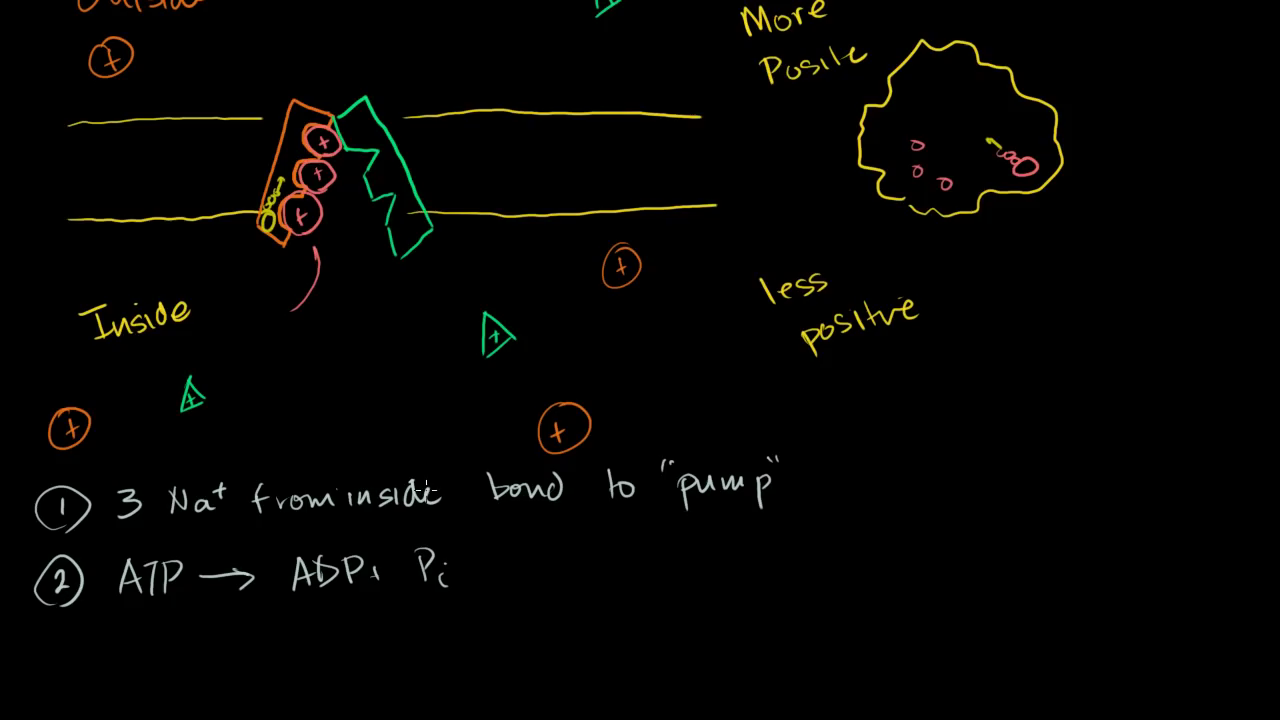 Outside
More
Positve
+
+ + +
Inside
+
less
positive
+
+
+
+
① 3 Na⁺ from inside bond to "pump"
② ATP → ADP + Pi